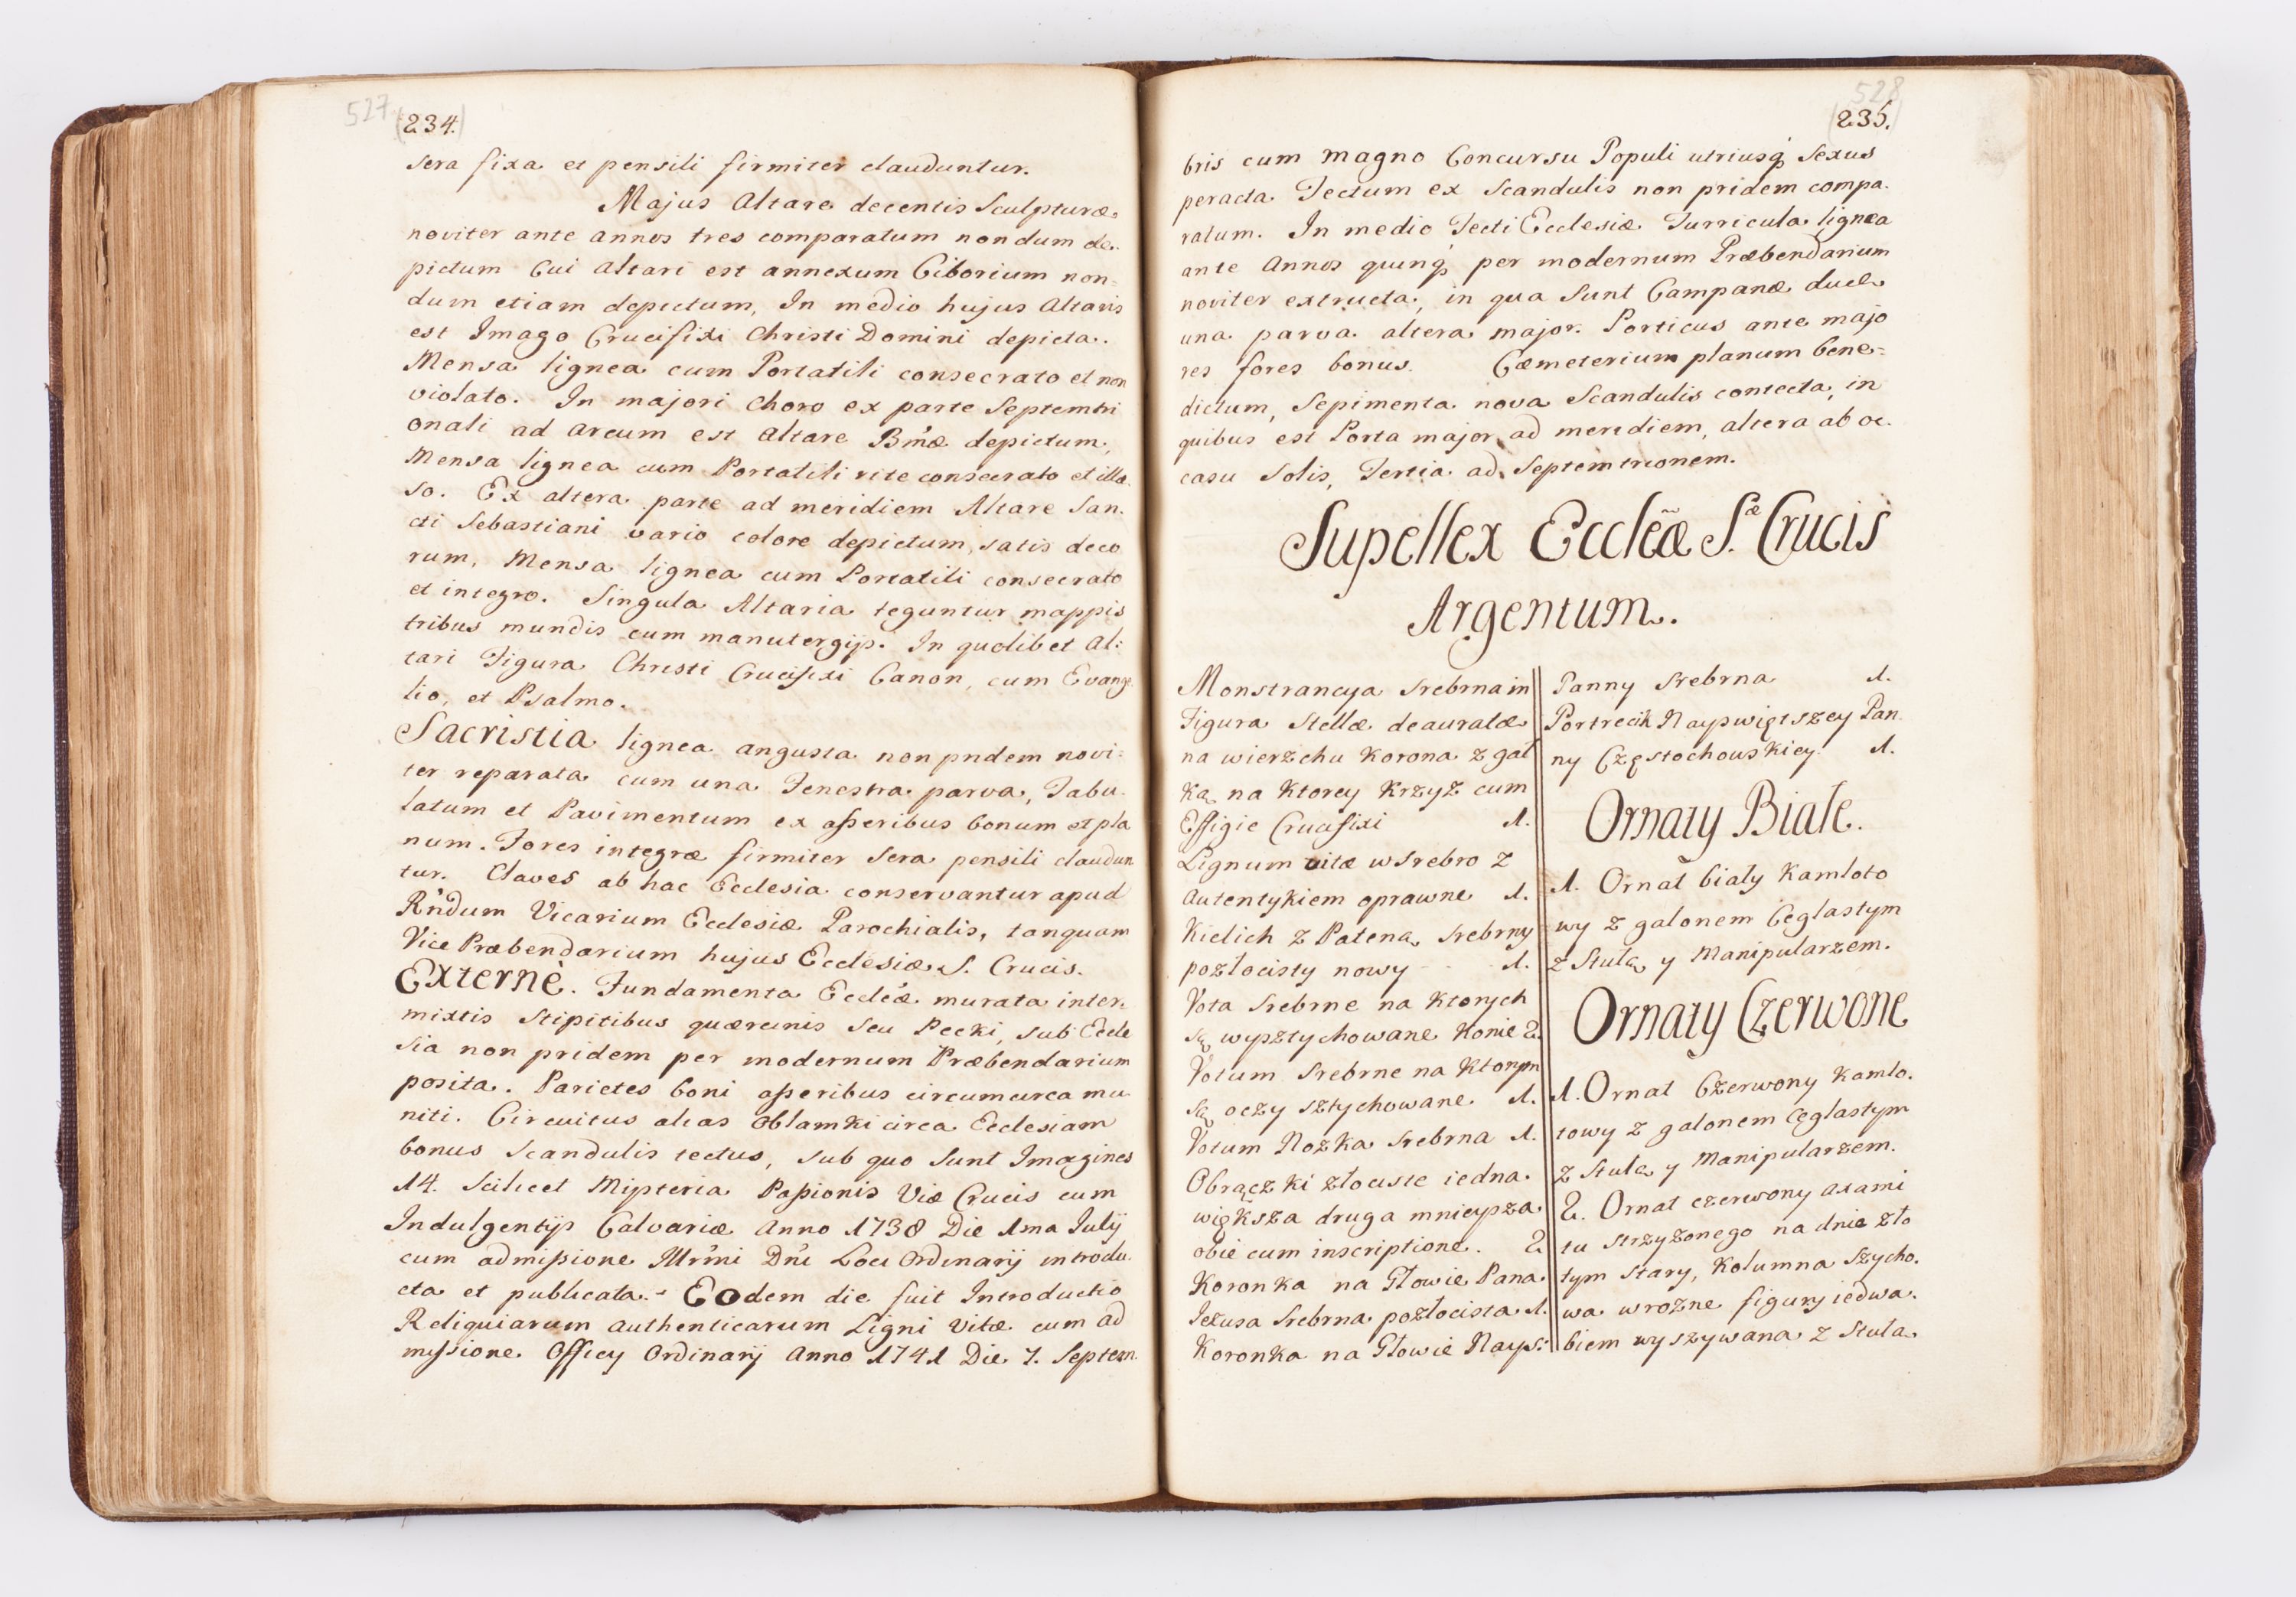 527
(234.)
sera fixa et pensili firmiter clauduntur.
Majus Altare decentis Sculpturæ
noviter ante annos tres comparatum nondum de-
pictum Cui Altari est annexum Ciborium non-
dum etiam depictum, In medio hujus Altaris
est Imago Crucifixi Christi Domini depicta.
Mensa lignea cum Portatili consecrato et non
violato. In majori Choro ex parte Septemtri
onali ad arcum est Altare Bmæ depictum,
Mensa lignea cum Portatili rite consecrato et illæ
so. Ex altera parte ad meridiem Altare San-
cti Sebastiani vario colore depictum, satis deco
rum, Mensa lignea cum Portatili consecrato
et integro. Singula Altaria teguntur mappis
tribus mundis cum manutergijs. In quolibet Al:
tari Figura Christi Crucifixi Canon, cum Evange
lio, et Psalmo.
Sacristia lignea angusta non pridem novi:
ter reparata cum una Fenestra parva, Tabu-
latum et Pavimentum ex asseribus bonum et pla
num. Fores integræ firmiter sera pensili claudun
tur. Claves ab hac Ecclesia conservantur apud
Rndum Vicarium Ecclesiæ Parochialis, tanquam
Vice Præbendarium hujus Ecclesiæ S. Crucis.
Externè. Fundamenta Eccleæ murata inter-
mixtis Stipitibus quærcinis seu Pecki, sub Eccle
sia non pridem per modernum Præbendarium
posita. Parietes boni asseribus circumcirca mu-
niti. Circuitus alias Oblamki circa Ecclesiam
bonus Scandulis tectus, sub quo sunt Imagines
14. Scilicet Mysteria Passionis Viæ Crucis cum
Indulgentijs Calvariæ Anno 1738 Die 1ma Julij
cum admissione Illrmi Dni Loci Ordinarij introdu-
cta et publicata.- Eodem die fuit Introductio
Reliquiarum Authenticarum Ligni Vitæ cum ad
missione Officy Ordinarij Anno 1741 Die 7. Septem-
528
(235.)
bris cum magno Concursu Populi utriusq Sexus
peracta Tectum ex Scandulis non pridem compa-
ratum. In medio Tecti Ecclesiæ Turricula lignea
ante Annos quinq per modernum Præbendarium
noviter extructa, in qua sunt Campanæ duæ
una parva altera major. Porticus ante majo
res fores bonus. Cæmeterium planum bene=
dictum, Sepimenta nova Scandulis contecta, in
quibus est Porta major ad meridiem, altera ab oc-
casu Solis, Tertia ad Septemtrionem.
Supellex Eccleæ S.æ Crucis
Argentum.
Monstrancya srebrna in
Figura Stellæ deauratæ
na wierzchu Korona z gał
ką na Ktorey Krzyż cum
Effigie Crucifixi 1.
Lignum vitæ w srebro z
autentykiem oprawne 1.
Kielich z Pateną srebrny
pozłocisty nowy - - 1.
Vota srebrne na Ktorych
są wysztychowane Konie 2.
Votum srebrne na Ktorym
są oczy sztychowane. 1.
Votum Nozka srebrna 1.
Obrączki złociste iedna
większa druga mnieysza
obie cum inscriptione. 2
Koronka na Głowie Pana
Jezusa srebrna pozłocista 1.
Koronka na Głowie Nays:
Panny srebrna 1.
Portrecik Nayswiętszey Pan-
ny Częstochowskiey. 1.
Ornaty Białe.
1. Ornat biały Kamloto
wy z galonem Ceglastym
z Stułą y Manipularzem.
Ornaty Czerwone
1. Ornat Czerwony Kamlo-
towy z galonem Ceglastym
z Stułą y Manipularzem.
2. Ornat czerwony axami
tu strzyzonego na dnie zło
tym stary, Kolumna szycho-
wa w rozne figury iedwa-
biem wyszywana z Stuła